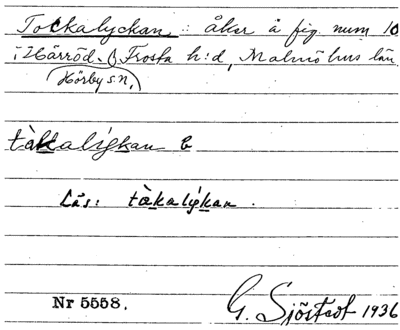 Tockalyckan, : åker å fig. num 10
i Härröd. Frosta h:d, Malmöhus län.
Hörby sn.
tàkalýkan
Läs: tàkalýkan.
Nr 5558. G. Sjöstedt 1936